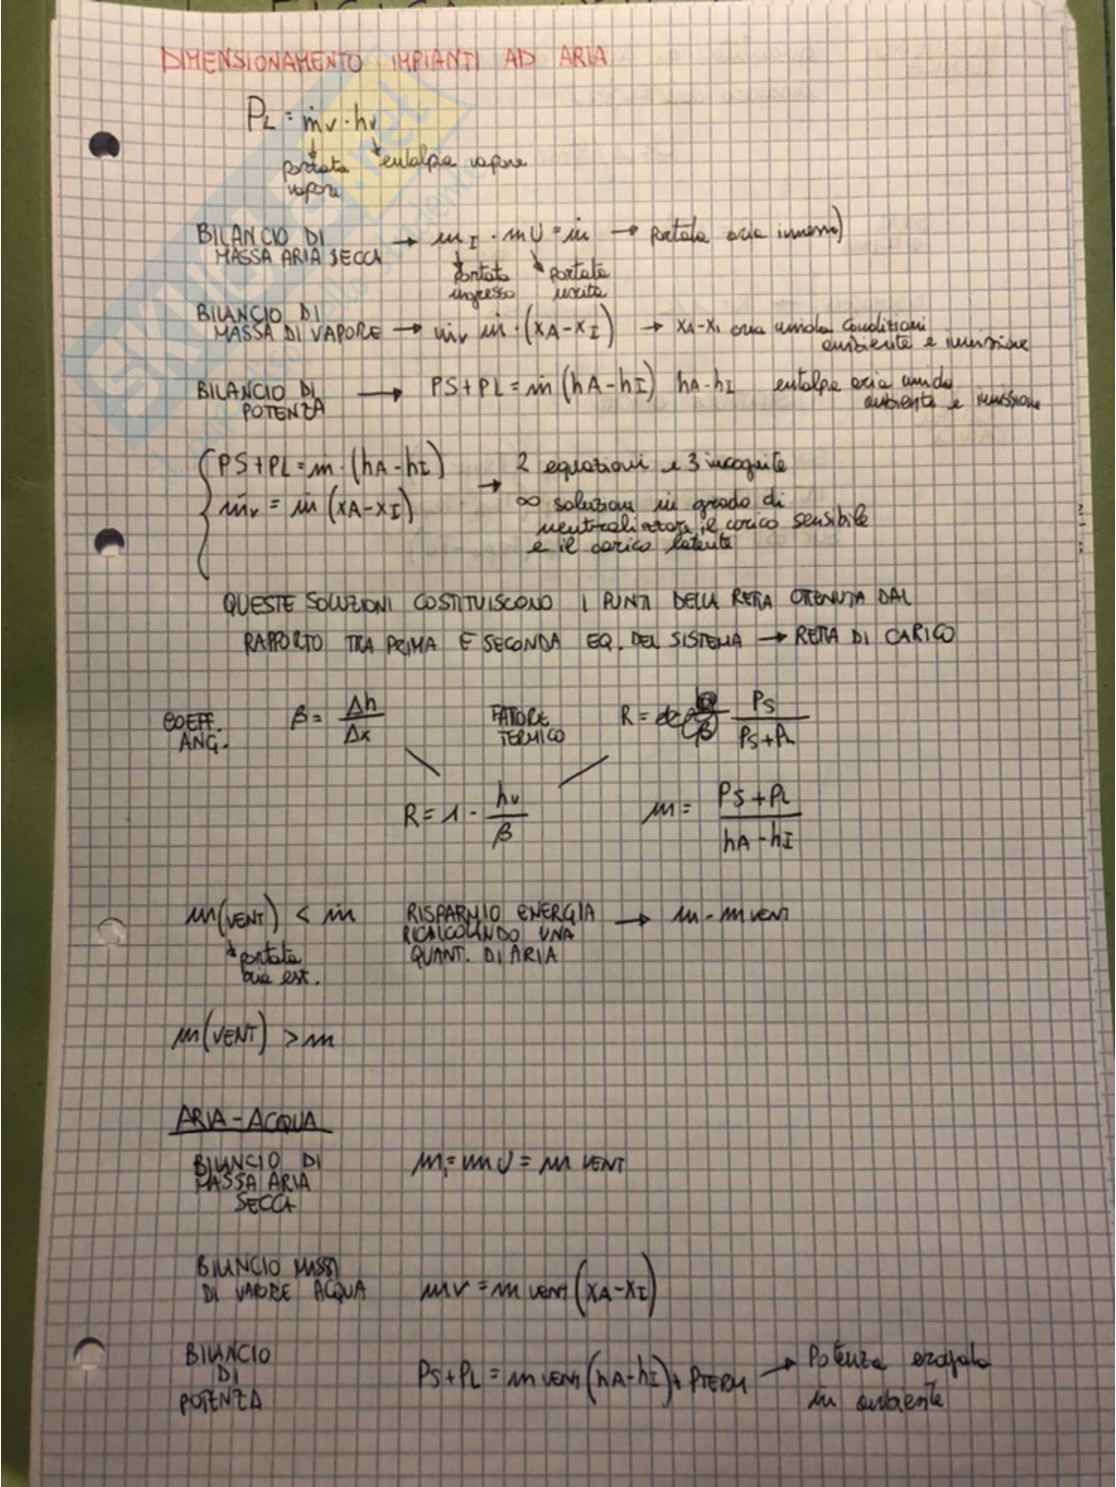 DIMENSIONAMENTO IMPIANTI AD ARIA
PL = ṁv · hv
portata vapore
entalpia vapore
BILANCIO DI MASSA ARIA SECCA → ṁI · mU = ṁ → portata aria immessa
portata ingresso
portata uscita
BILANCIO DI MASSA DI VAPORE → ṁv ṁ · (xA - xI) → xA - xI aria umida condizioni
ambiente e immissione
BILANCIO DI POTENZA → PS + PL = ṁ (hA - hI) hA - hI entalpia aria umida
ambiente e immissione
PS + PL = ṁ · (hA - hI)
ṁv = ṁ (xA - xI)
→ 2 equazioni e 3 incognite
∞ soluzioni in grado di
neutralizzare il carico sensibile
e il carico latente
QUESTE SOLUZIONI COSTITUISCONO I PUNTI DELLA RETTA OTTENUTA DAL
RAPPORTO TRA PRIMA E SECONDA EQ. DEL SISTEMA → RETTA DI CARICO
COEFF. ANG. β = Δh / Δx
FATTORE TERMICO R = PS / (PS + PL)
R = 1 - hv / β
m = (PS + PL) / (hA - hI)
m(VENT) < ṁ
portata aria est.
RISPARMIO ENERGIA
RICALCOLANDO UNA
QUANT. DI ARIA
→ m - m VENT
m(VENT) > m
ARIA - ACQUA
BILANCIO DI MASSA ARIA SECCA
mI = mU = m VENT
BILANCIO MASSA
DI VAPORE ACQUA
mv = m VENT (xA - xI)
BILANCIO DI POTENZA
PS + PL = m VENT (hA - hI) + PTERM → Potenza erogata
in ambiente